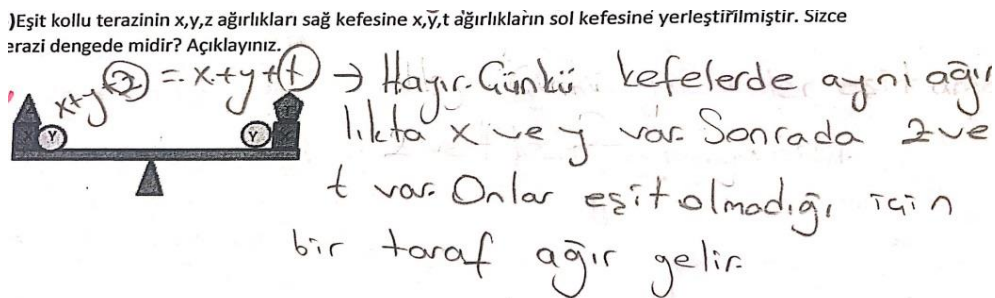 )Eşit kollu terazinin x,y,z ağırlıkları sağ kefesine x,y,t ağırlıkların sol kefesine yerleştirilmiştir. Sizce
erazi dengede midir? Açıklayınız.
x+y+z = x+y+t → Hayır. Günkü kefelerde ayni ağır
lıkta x ve y var. Sonrada z ve
t var. Onlar eşit olmadığı için
bir taraf ağır gelir.
Y Y